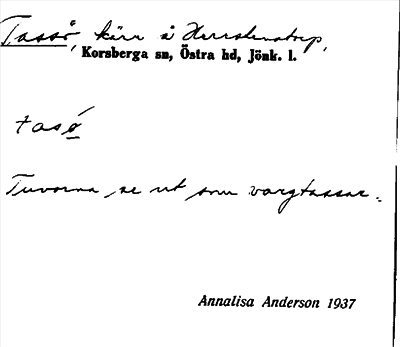 Tasså, kärr å Herrstenstorp,
Korsberga sn, Östra hd, Jönk. l.
tasø
Tuvorna se ut som vargtassar.
Annalisa Anderson 1937